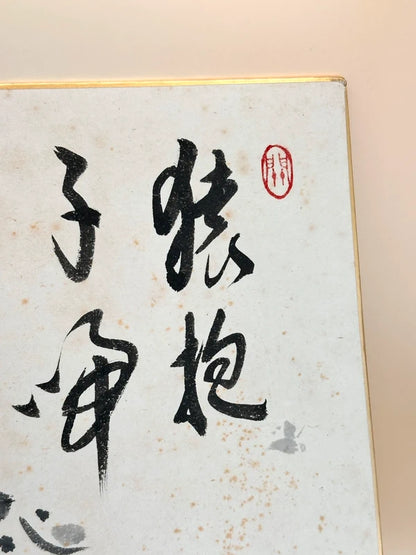 猿抱
子帰